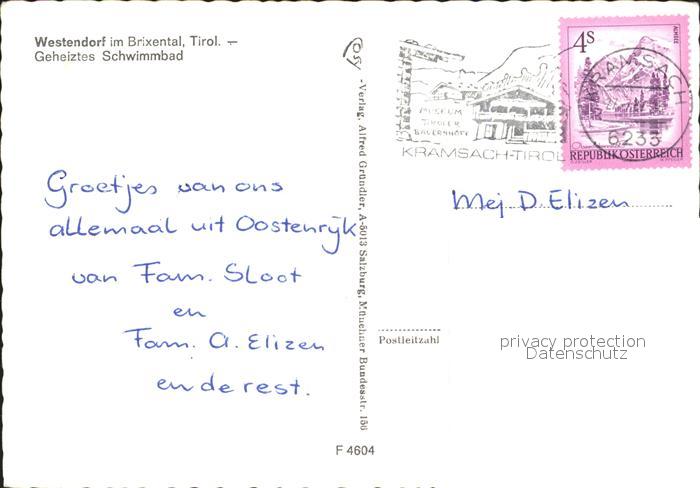 Westendorf im Brixental, Tirol. —
Geheiztes Schwimmbad
Groetjes van ons
allemaal uit Oostenrijk
van Fam. Sloot
en
Fam. A. Elizen
en de rest.
Cosy-Verlag, Alfred Gründler, A-5013 Salzburg, Münchner Bundesstr. 156
F 4604
MUSEUM
TIROLER
BAUERNHÖFE
KRAMSACH-TIROL
KRAMSACH
6233
4S
ALMSEE
REPUBLIK ÖSTERREICH
Mej D. Elizen
Postleitzahl
privacy protection
Datenschutz